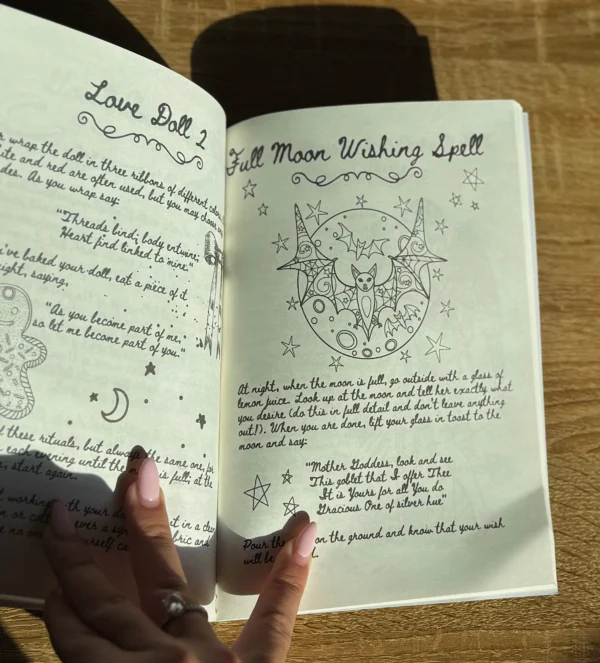 Love Doll 2
wrap the doll in three ribbons of different
and red are often used, but you may choose
As you wrap say:
"Threads bind; body entwine;
Heart find linked to mine."
baked your doll, eat a piece of it
saying,
"As you become part of me,
so let me become part of you."
these rituals, but always the same one, for
each evening until the is full; at the
start again.
Full Moon Wishing Spell
At night, when the moon is full, go outside with a glass of
lemon juice. Look up at the moon and tell her exactly what
you desire (do this in full detail and don't leave anything
out!). When you are done, lift your glass in toast to the
moon and say:
"Mother Goddess, look and see
This goblet that I offer Thee
It is Yours for all You do
Gracious One of silver hue"
Pour on the ground and know that your wish
will be